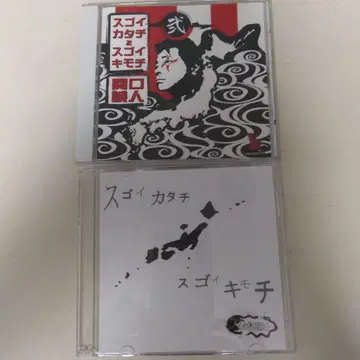 スゴイ
カタチ
スゴイ
キモチ
弐
口
人
スゴイ カタチ
スゴイ キモチ